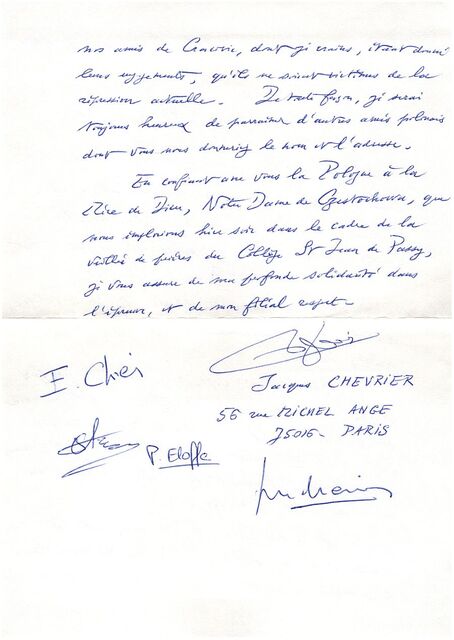 nos amis de Cracovie, dont je crains, étant donné
leurs engagements, qu'ils ne soient victimes de la
répression actuelle. De toute façon, je serai
toujours heureux de parrainer d'autres amis polonais
dont vous nous donneriez le nom et l'adresse.
En confiant avec vous la Pologne à la
Mère de Dieu, Notre Dame de Czestochowa, que
nous implorions hier soir dans le cadre de la
veillée de prières du Collège St Jean de Passy,
je vous assure de ma profonde solidarité dans
l'épreuve, et de mon filial respect.
E. Chér
Jacques CHEVRIER
56 rue MICHEL ANGE
75016 - PARIS
P. Eloffe